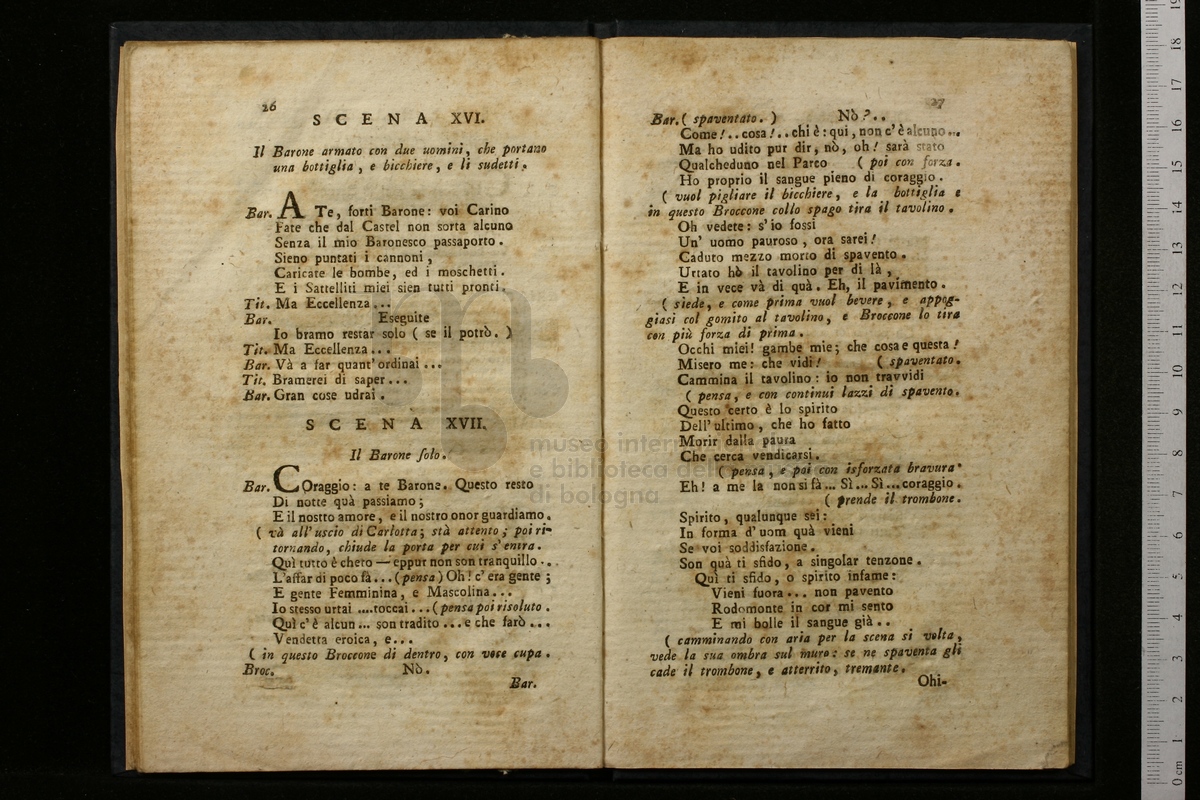 26
SCENA XVI.
Il Barone armato con due uomini, che portano
una bottiglia, e bicchiere, e li sudetti.
Bar. A Te, forti Barone: voi Carino
Fate che dal Castel non sorta alcuno
Senza il mio Baronesco passaporto.
Sieno puntati i cannoni,
Caricate le bombe, ed i moschetti.
E i Sattelliti miei sien tutti pronti.
Tit. Ma Eccellenza...
Bar. Eseguite
Io bramo restar solo ( se il potrò. )
Tit. Ma Eccellenza...
Bar. Và a far quant' ordinai ...
Tit. Bramerei di saper...
Bar. Gran cose udrai.
SCENA XVII.
Il Barone solo.
Bar. COraggio: a te Barone. Questo resto
Di notte quà passiamo;
E il nostto amore, e il nostro onor guardiamo.
( và all' uscio di Carlotta; stà attento; poi ri-
tornando, chiude la porta per cui s' entra.
Quì tutto è cheto — eppur non son tranquillo...
L'affar di poco fà...(pensa) Oh! c' era gente;
E gente Femminina, e Mascolina...
Io stesso urtai ....toccai...(pensa poi risoluto.
Quì c' è alcun... son tradito ...e che farò ...
Vendetta eroica, e...
( in questo Broccone di dentro, con voce cupa.
Broc. Nò.
Bar.
27
Bar. ( spaventato. ) Nò?..
Come!..cosa!..chi è: qui, non c' è alcuno...
Ma ho udito pur dir, nò, oh! sarà stato
Qualcheduno nel Parco ( poi con forza.
Ho proprio il sangue pieno di coraggio.
( vuol pigliare il bicchiere, e la bottiglia e
in questo Broccone collo spago tira il tavolino.
Oh vedete: s' io fossi
Un' uomo pauroso, ora sarei!
Caduto mezzo morto di spavento.
Urtato hò il tavolino per di là,
E in vece và di quà. Eh, il pavimento.
( siede, e come prima vuol bevere, e appog-
giasi col gomito al tavolino, e Broccone lo tira
con più forza di prima.
Occhi miei! gambe mie; che cosa e questa!
Misero me: che vidi! ( spaventato.
Cammina il tavolino: io non travvidi
( pensa, e con continui lazzi di spavento.
Questo certo è lo spirito
Dell' ultimo, che ho fatto
Morir dalla paura
Che cerca vendicarsi.
( pensa, e poi con isforzata bravura
Eh! a me la non si fà... Sì... Sì...coraggio.
( prende il trombone.
Spirito, qualunque sei:
In forma d' uom quà vieni
Se voi soddisfazione.
Son quà ti sfido, a singolar tenzone.
Quì ti sfido, o spirito infame:
Vieni fuora... non pavento
Rodomonte in cor mi sento
E mi bolle il sangue già..
( camminando con aria per la scena si volta,
vede la sua ombra sul muro: se ne spaventa gli
cade il trombone, e atterrito, tremante.
Ohi-
museo inter
e biblioteca del
di bologna